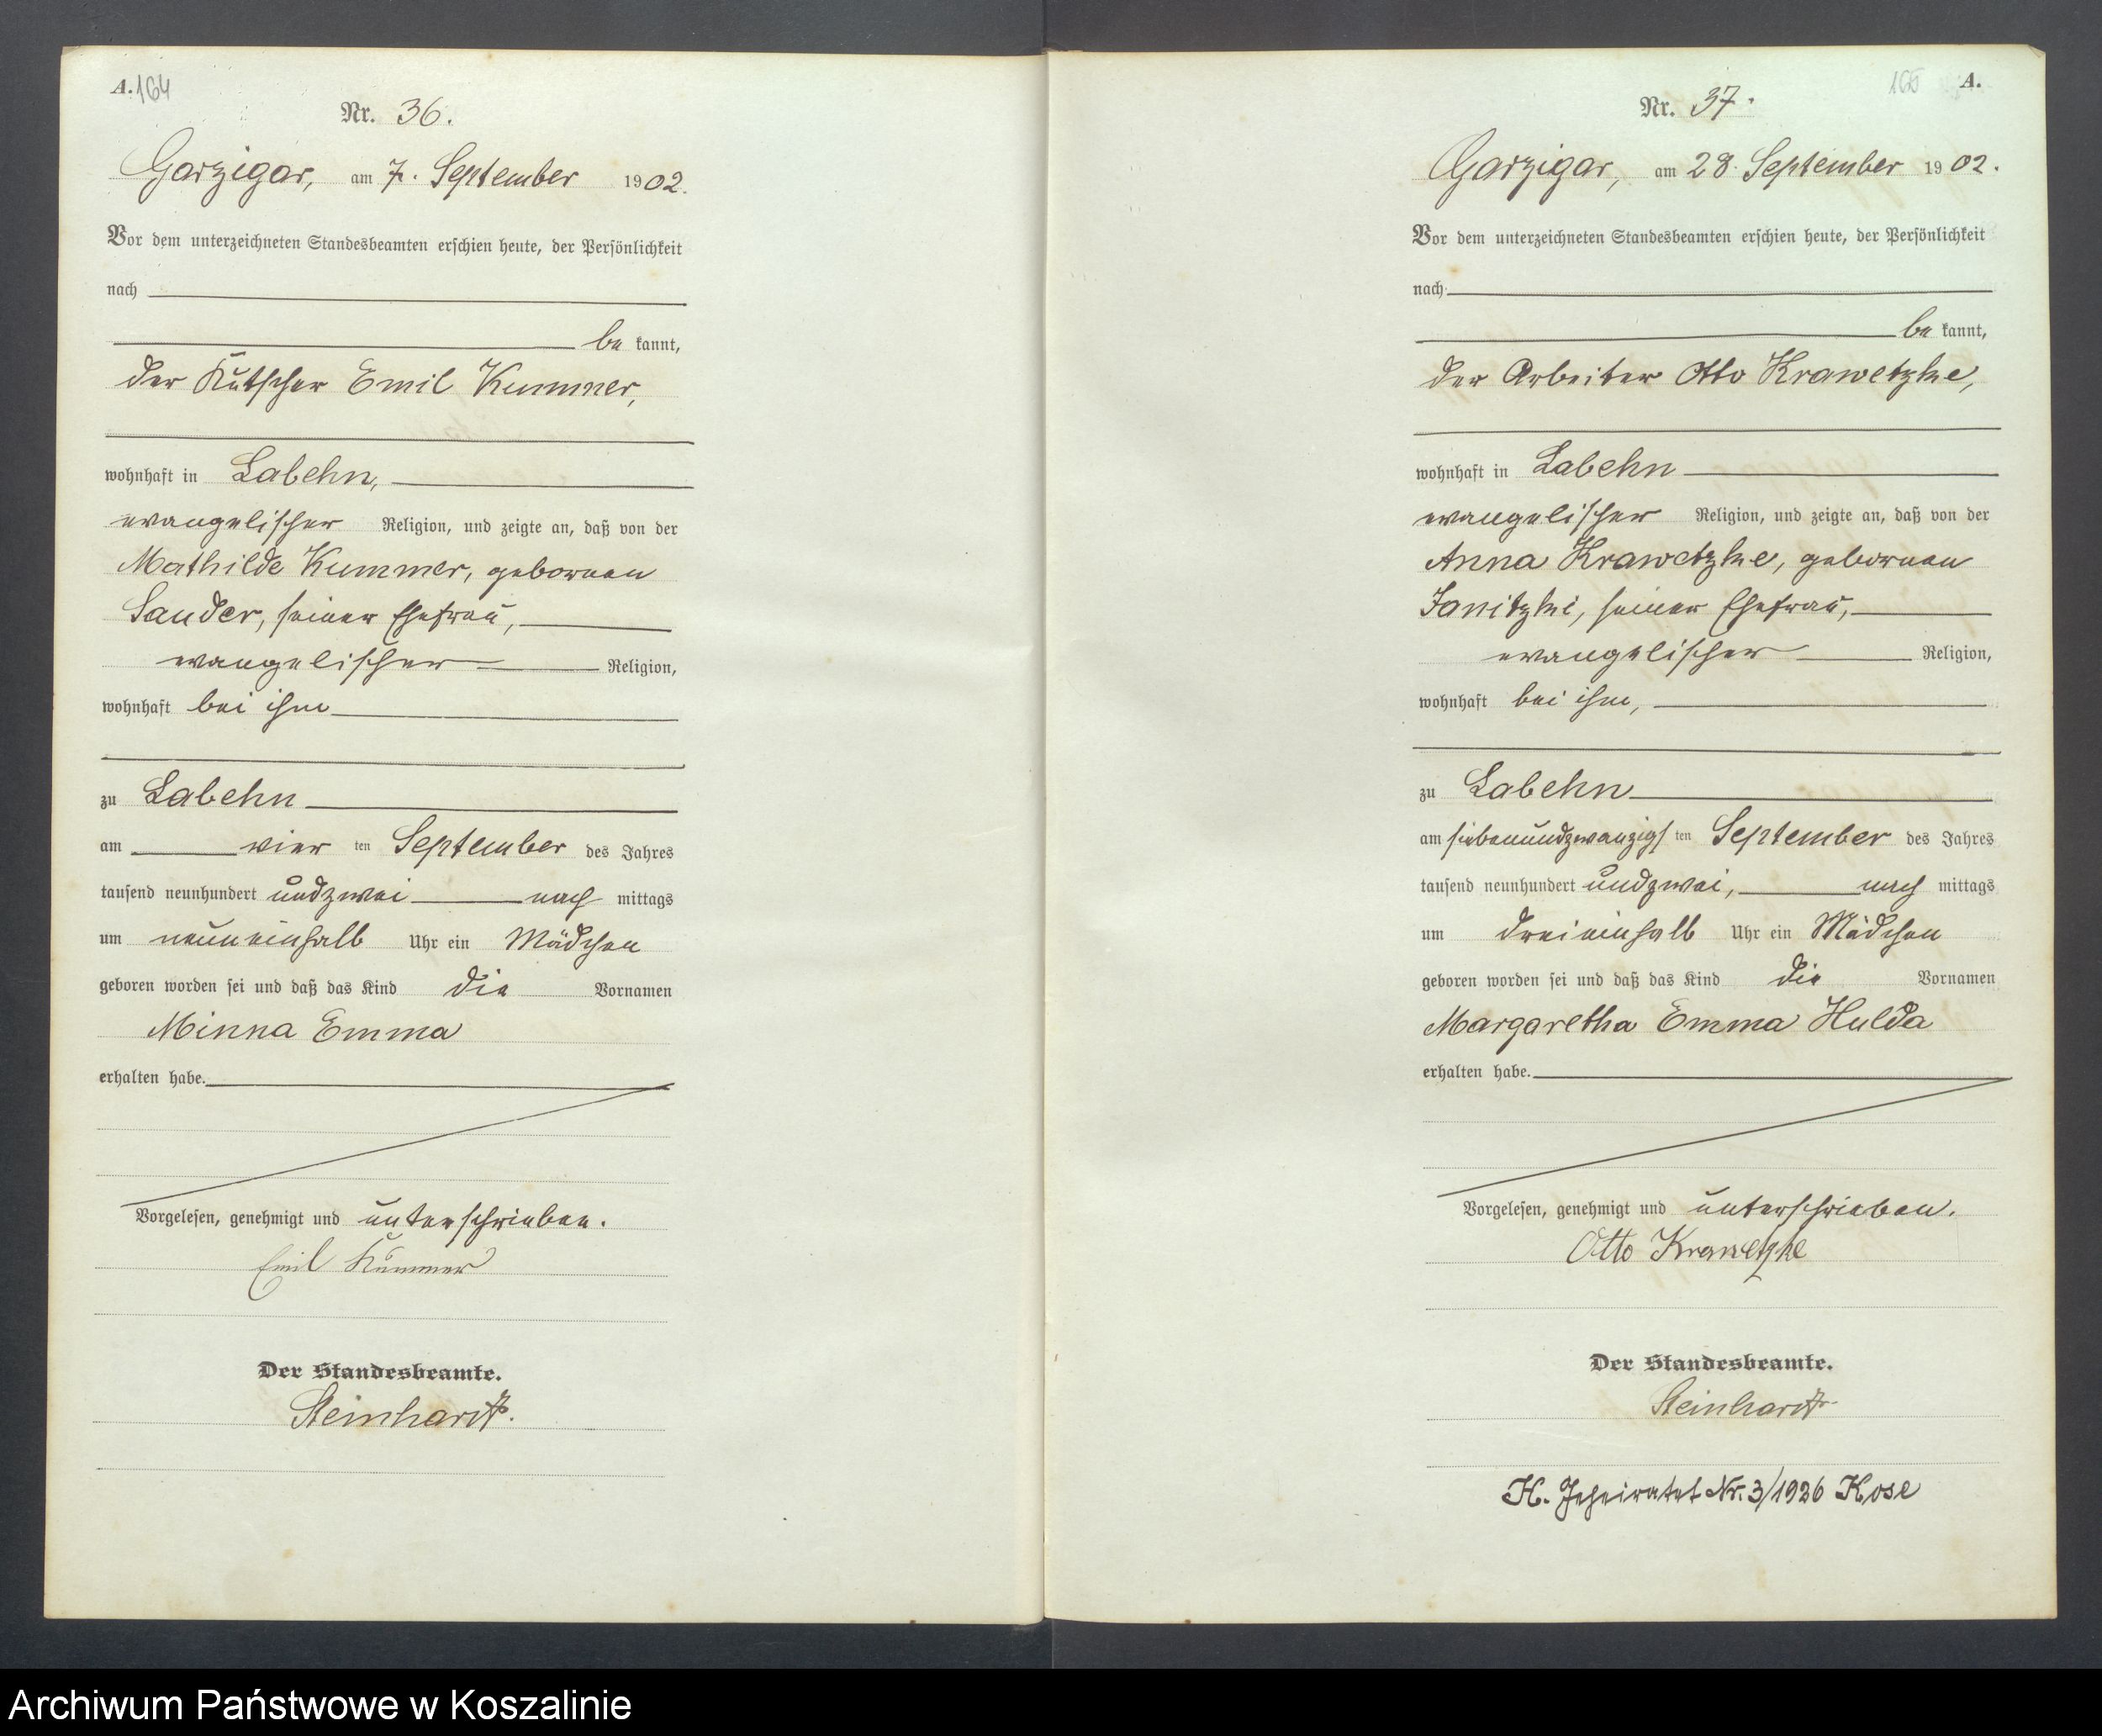 A. 164
Nr. 36.
Garzigar, am 7. September 1902.
Vor dem unterzeichneten Standesbeamten erschien heute, der Persönlichkeit
nach
be kannt,
der Kutscher Emil Kummer,
wohnhaft in Labehn,
evangelischer Religion, und zeigte an, daß von der
Mathilde Kummer, geborenen
Sander, seiner Ehefrau,
evangelischer Religion,
wohnhaft bei ihm
zu Labehn
am vier ten September des Jahres
tausend neunhundert undzwei nach mittags
um neuneinhalb Uhr ein Mädchen
geboren worden sei und daß das Kind die Vornamen
Minna Emma
erhalten habe.
Vorgelesen, genehmigt und unterschrieben.
Emil Kummer
Der Standesbeamte.
Steinhardt.
165 A.
Nr. 37.
Garzigar, am 28. September 1902.
Vor dem unterzeichneten Standesbeamten erschien heute, der Persönlichkeit
nach
be kannt,
der Arbeiter Otto Krawetzke,
wohnhaft in Labehn
evangelischer Religion, und zeigte an, daß von der
Anna Krawetzke, geborenen
Janitzki, seiner Ehefrau,
evangelischer Religion,
wohnhaft bei ihm,
zu Labehn
am siebenundzwanzigs ten September des Jahres
tausend neunhundert undzwei, nach mittags
um dreieinhalb Uhr ein Mädchen
geboren worden sei und daß das Kind die Vornamen
Margaretha Emma Hulda
erhalten habe.
Vorgelesen, genehmigt und unterschrieben.
Otto Krawetzke
Der Standesbeamte.
Steinhardt
H. Geheiratet Nr. 3/1926 Kose
Archiwum Państwowe w Koszalinie